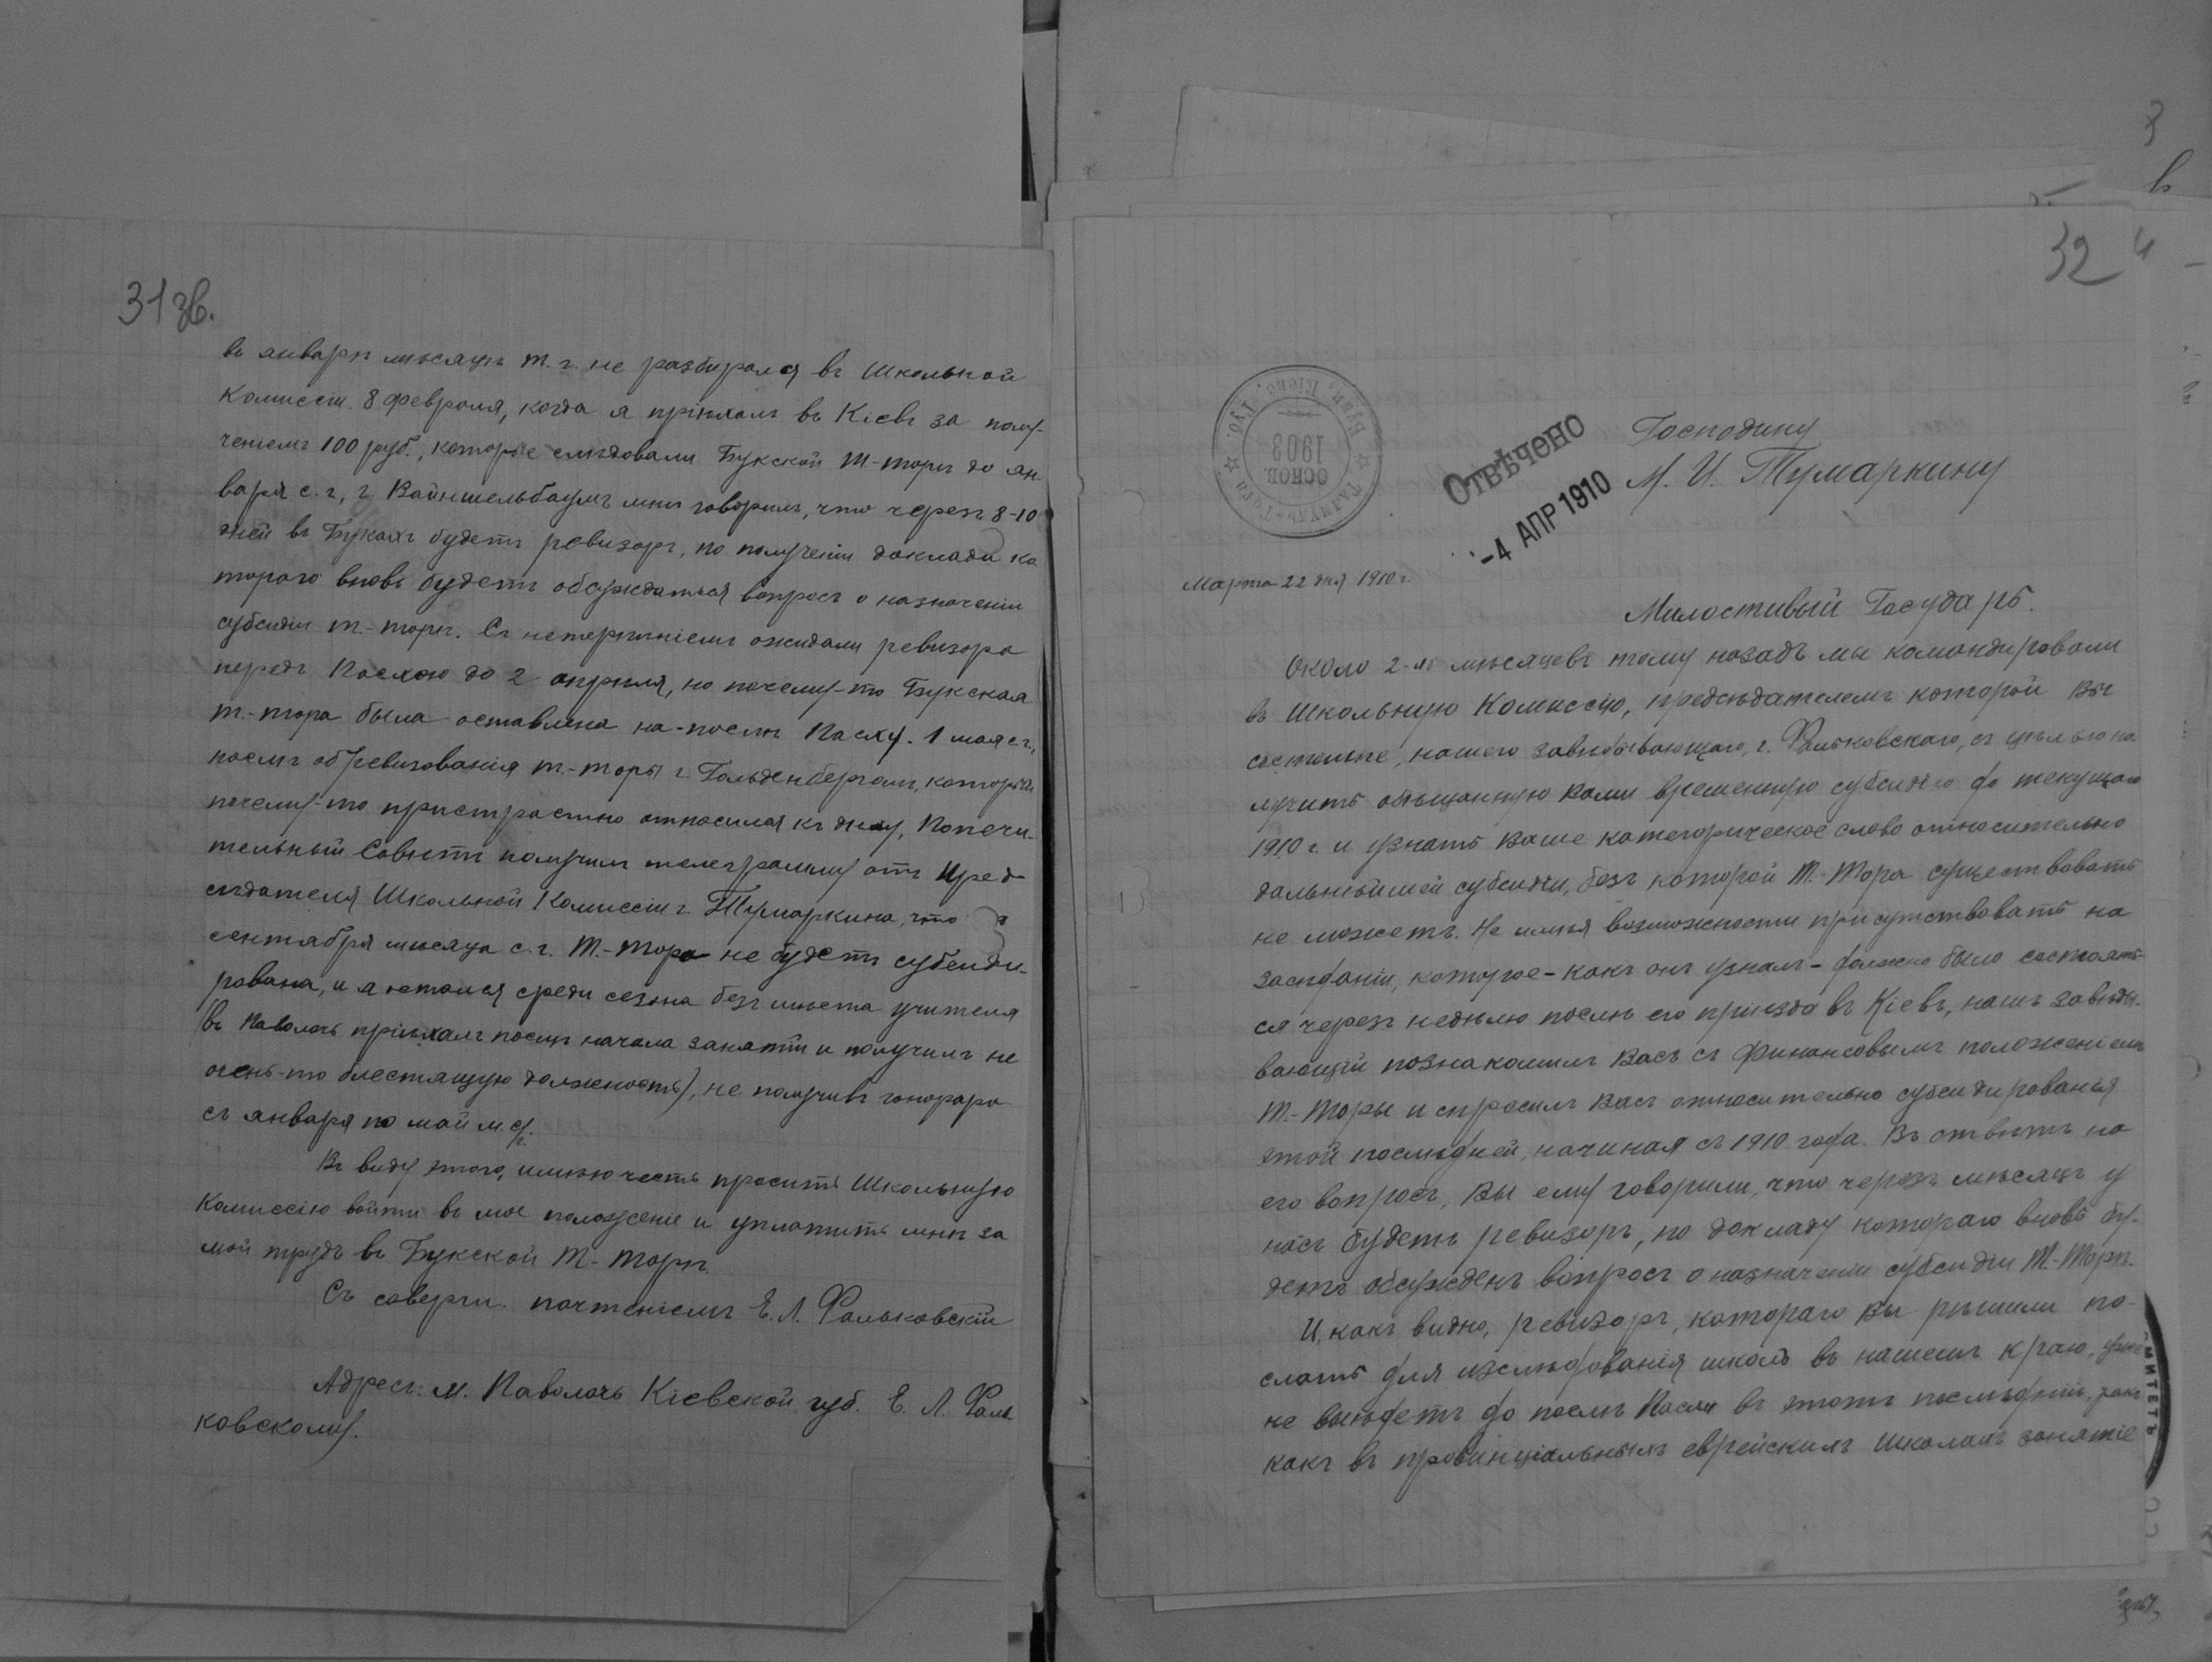 31 зв.
въ январѣ мѣсяцѣ т. г. не разбирался въ Школьной
Комиссіи. 8 февраля, когда я пріѣхалъ въ Кіевъ за полу-
ченіемъ 100 руб., которые слѣдовали Букской т.-торѣ до ян-
варя с. г., г. Вайншельбаумъ мнѣ говорилъ, что черезъ 8-10
дней въ Букахъ будетъ ревизоръ, по полученіи доклада ко
тораго вновь будетъ обсуждаться вопросъ о назначеніи
субсидіи т.-торѣ. Съ нетерпѣніемъ ожидали ревизора
передъ Пасхою до 2 апрѣля, но почему-то Букская
т.-тора была оставлена на-послѣ Пасху. 1 мая с. г.,
послѣ обревизованія т.-торы г. Гольденбергомъ, который
почему-то пристрастно относился къ дѣлу, Попечи-
тельный Совѣтъ получилъ телеграмму отъ Пред-
сѣдателя Школьной Комиссіи г. Тумаркина, что
сентября мѣсяца с. г. Т.-Тора не будетъ субсиди-
рована, и я остался среди сезона безъ мѣста учителя
(въ Паволочь пріѣхалъ послѣ начала занятій и получилъ не
очень-то блестящую должность), не получивъ гонорара
съ января по май м. с/г.
Въ виду этого, имѣю честь просить Школьную
Комиссію войти въ мое положеніе и уплатить мнѣ за
мой трудъ въ Букской Т-Торѣ.
Съ соверш. почтеніемъ Е. Л. Фальковскій
Адресъ: м. Паволочь Кіевской губ. Е. Л. Фаль
ковскому.
32
Талмудъ-Тора
Буки, Кіевс. Губ.
ОСНОВ.
1903
Отвѣчено
-4 АПР 1910
Господину
М. И. Тумаркину
Марта 22 дня 1910 г.
Милостивый Государь.
Около 2-хъ мѣсяцевъ тому назадъ мы командировали
въ Школьную Комиссію, предсѣдателемъ которой Вы
состоите, нашего завѣдывающаго, г. Фальковскаго, съ цѣлью по
лучить обѣщанную Вами временную субсидію до текущаго
1910 г. и узнать Ваше категорическое слово относительно
дальнѣйшей субсидіи, безъ которой Т.-Тора существовать
не можетъ. Не имѣя возможности присутствовать на
засѣданіи, которое - какъ онъ узналъ - должно было состоять-
ся черезъ недѣлю послѣ его пріѣзда въ Кіевъ, нашъ завѣды-
вающій познакомилъ Васъ съ финансовымъ положеніемъ
Т.-Торы и спросилъ Васъ относительно субсидированья
этой послѣдней, начиная съ 1910 года. Въ отвѣтъ на
его вопросъ, Вы ему говорили, что черезъ мѣсяцъ у
насъ будетъ ревизоръ, по докладу котораго вновь бу-
детъ обсужденъ вопросъ о назначеніи субсидіи Т.-Торѣ.
И, какъ видно, ревизоръ, котораго Вы рѣшили по-
слать для изслѣдованія школъ въ нашемъ краю, уже
не выѣдетъ до послѣ Пасхи въ этотъ послѣдній, такъ
какъ въ провинціальныхъ еврейскихъ школахъ занятіе
МИТЕТЪ